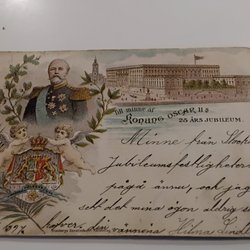 till minne af
Konung OSCAR II:s
25 ÅRS JUBILEUM.
Minne från Stock
Jubileumsfestligheter
pågå ännu, och jag
sett det mina ögon aldrig s
vännina Hilma